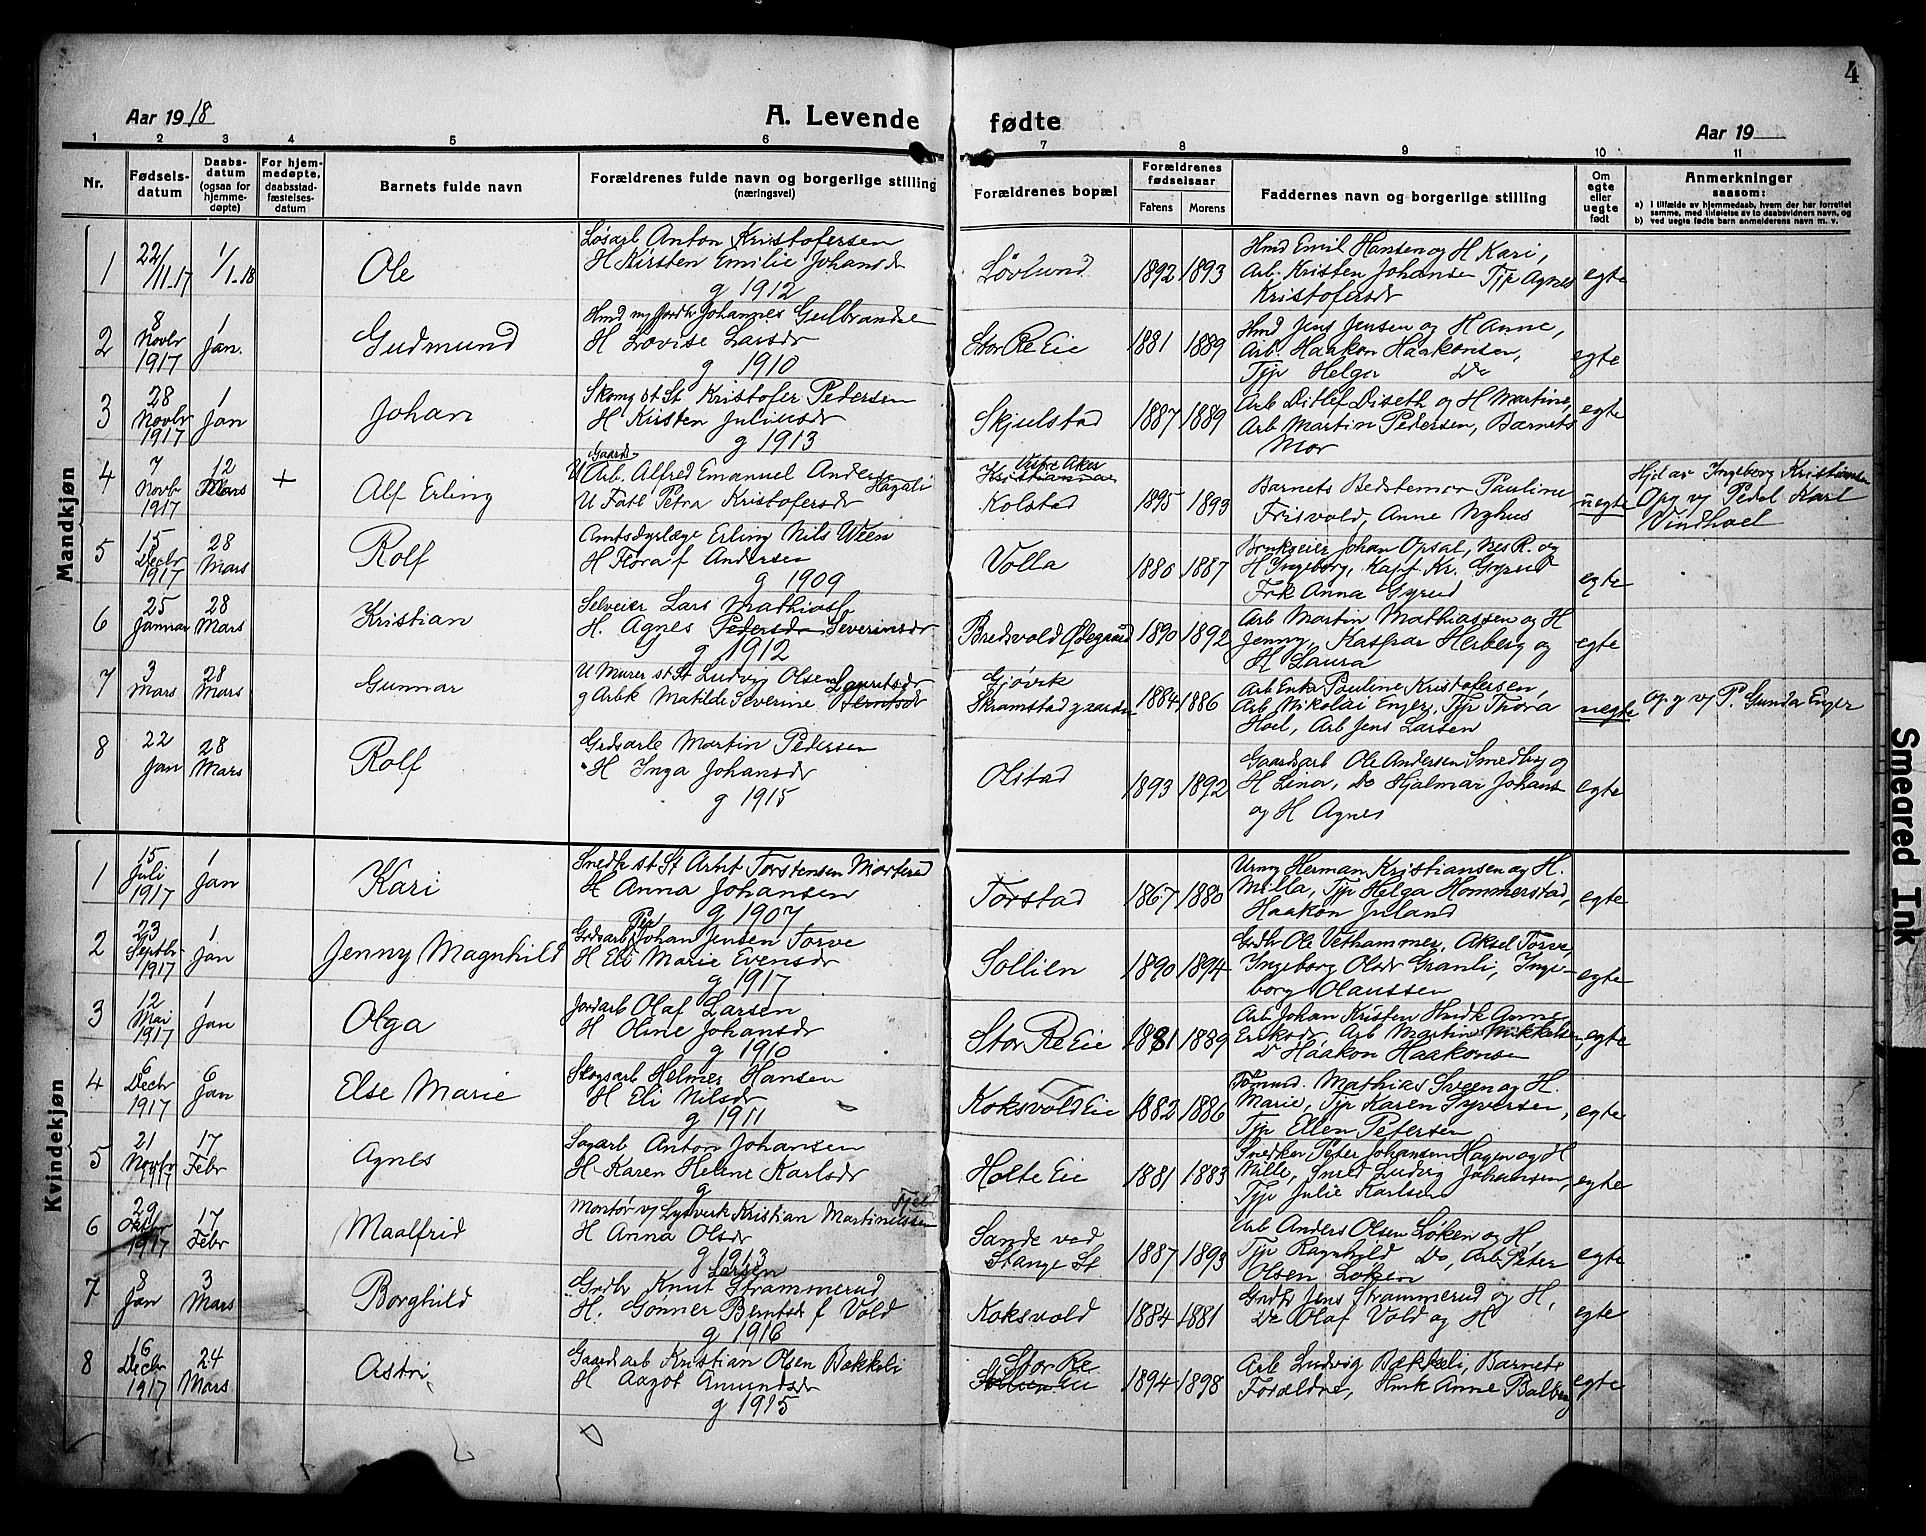 4
Aar 1918
A. Levende fødte
Aar 19
1 2 3 4 5 6 7 8 9 10 11
Nr.
Fødsels-
datum
Daabs-
datum
(ogsaa for
hjemme-
døpte)
For hjem-
medøpte,
daabsstad-
fæstelses-
datum
Barnets fulde navn
Forældrenes fulde navn og borgerlige stilling
(næringsvei)
Forældrenes bopæl
Forældrenes
fødselsaar
Farens Morens
Faddernes navn og borgerlige stilling
Om
egte
eller
uegte
født
Anmerkninger
saasom:
a) I tilfælde av hjemmedaab, hvem der har forrettet
samme, med tilføielse av to daabsvidners navn, og
b) ved uegte fødte barn anmelderens navn m. v.
Mandkjøn
1 22/11-17 1/1-18 Ole
Løsarb Anton Kristofersen
H Kirsten Emilie Johansdr
g 1912
Løvlund 1892 1893
Hmd Emil Hansen og H Kari,
Arb. Kristen Johansen Tjp Agnes
Kristofersdr
egte
2 8 Novbr 1917 1 Jan. Gudmund
Hmd Johannes Gulbrandse
H Lovise Larsdr
g 1910
Stor Re Eie 1881 1889
Hmd Jens Jensen og H Anne,
Arb. Haakon Haakonsen,
Tjp Helga Do
egte
3 28 Novbr 1917 1 Jan Johan
Skomg st St Kristofer Pedersen
H Kristen Juliusdr
g 1913
Skjulstad 1887 1889
Arb Ditlef Diseth og H Martine,
Arb Martin Pedersen, Barnets
Mor
egte
4 7 Novb 1917 12 Mars + Alf Erling
Gaards
U Arb. Alfred Emanuel Anders Hagali
U Fabr Petra Kristofersdr
Vestre Aker
Kristiania
Kolstad 1895 1893
Barnets Bedstemor Pauline
Frisvold, Anne Nyhus
uegte
Hjd av Ingeborg Kristiansen
Opg v/ Pedel Karl
Vindhoel
5 15 Decbr 1917 28 Mars Rolf
Amtsdyrlæge Erling Nils Ween
H Flora f Andersen
g 1909
Volla 1880 1887
Brukseier Johan Opsal, Nes R. og
H Ingeborg, Kapt Kr. Gyrud
Frk Anna Gyrud
egte
6 25 Januar 28 Mars Kristian
Selveier Lars Mathias
H. Agnes Pedersdr Severinsdr
g 1912
Bredvold Ødegaard 1890 1892
Arb Martin Mathiassen og H
Jenny, Kaspar Herberg og
H Laura
egte
7 3 Mars 28 Mars Gunnar
U Murer st St Ludvig Olsen Lauritsdr
g Arbk Matilde Severine Berntsdr
Gjøvik
Skramstadgaarden 1884 1886
Arb Enke Pauline Kristofersen,
Arb Mikolai Enger, Tjp Thora
Hoel, Arb Jens Larsen
uegte
Opg v/ P. Gunda Enger
8 22 Jan 28 Mars Rolf
Grdsarb Martin Pedersen
H Inga Johansdr
g 1915
Olstad 1893 1892
Gaardsarb Ole Andersen Smedbg og
H Lina, Do Hjalmar Johans
og H Agnes
egte
Kvindekjøn
1 15 Juli 1917 1 Jan Kari
Snedk st St Arnt Torstensen Morterud
H Anna Johansen
g 1907
Torstad 1867 1880
Urmg Herman Kristiansen og H.
Milla, Tjp Helga Hommerstad,
Haakon Juland
egte
2 23 Septbr 1917 1 Jan Jenny Magnhild
Per
Grdsarb Johan Jensen Torve
H Eli Marie Evensdr
g 1917
Sollien 1890 1894
Grdbr Ole Vethammer, Aksel Torve,
Ingeborg Olsdr Granli, Inge-
borg Olaussen
egte
3 12 Mai 1917 1 Jan Olga
Jordarb Olaf Larsen
H Oline Johansdr
g 1910
Stor Re Eie 1881 1889
Arb Johan Kristen Anne
Eriksdr, Arb Martin Mikkelsen,
Do Haakon Haakonsen
egte
4 6 Decbr 1917 6 Jan Else Marie
Skogsarb Helmer Hansen
H Eli Nilsdr
g 1911
Koksvold Eie 1882 1886
Tømmd. Mathias Sveen og H.
Marie, Tjp Karen Syversen,
Tjp Ellen Petersen
egte
5 21 Novbr 1917 17 Febr Agnes
Sagarb Anton Johansen
H Karen Helene Karlsdr
g
Holte Eie 1881 1883
Snedker Peter Johansen Hagen og H
Mille, Smed Ludvig Johansen,
Tjp Julie Karlsen
egte
6 29 Oktbr 1917 17 Febr Maalfrid
Montør v/ Lysverk Kristian Martinussen Fjeld
H Anna Olsdr
g 1913
Sande ved
Stange St 1887 1893
Arb Anders Olsen Løken og H,
Tjp Ragnhild Do, Arb Peter
Olsen Løken
egte
7 8 Jan 3 Mars Borghild
Larsen
Grdbr Knut Strammerud
H. Gonner Berntsdr f Vold
g 1916
Koksvold 1884 1881
Grdbr Jens Strammerud og H,
Do Olaf Vold og H
egte
8 16 Decbr 1917 24 Mars Astri
Gaardsarb Kristian Olsen Bækkeli
H Aagot Amundsdr
g 1915
Stor Re
Eie 1894 1898
Arb Ludvig Bækkeli, Barnets
Forældre, Hmk Anne Balberg
egte
Smeared Ink